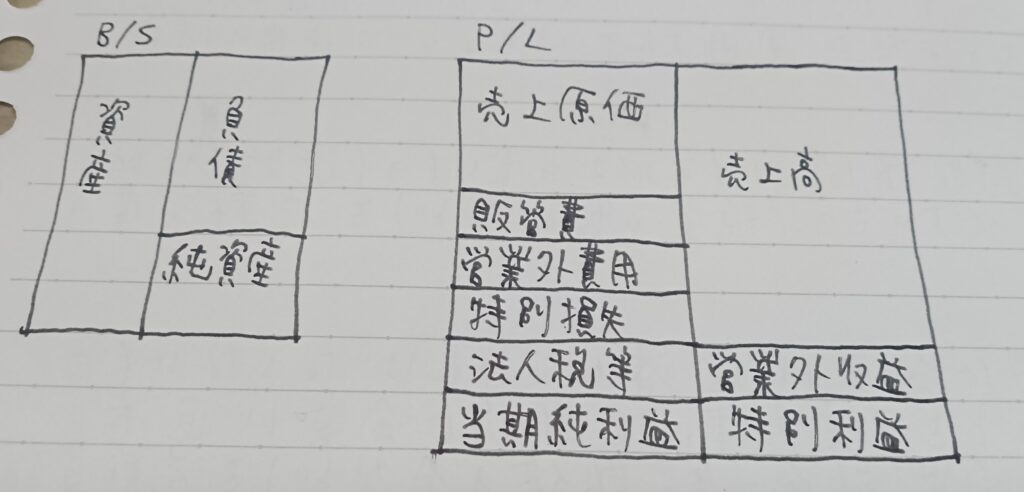 B/S
資産
負債
純資産
P/L
売上原価
販管費
営業外費用
特別損失
法人税等
当期純利益
売上高
営業外収益
特別利益